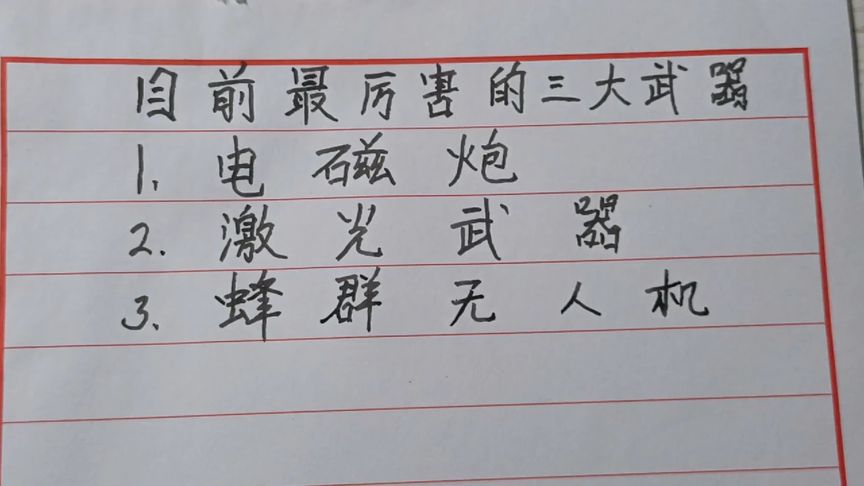 目前最厉害的三大武器
1. 电磁炮
2. 激光武器
3. 蜂群无人机